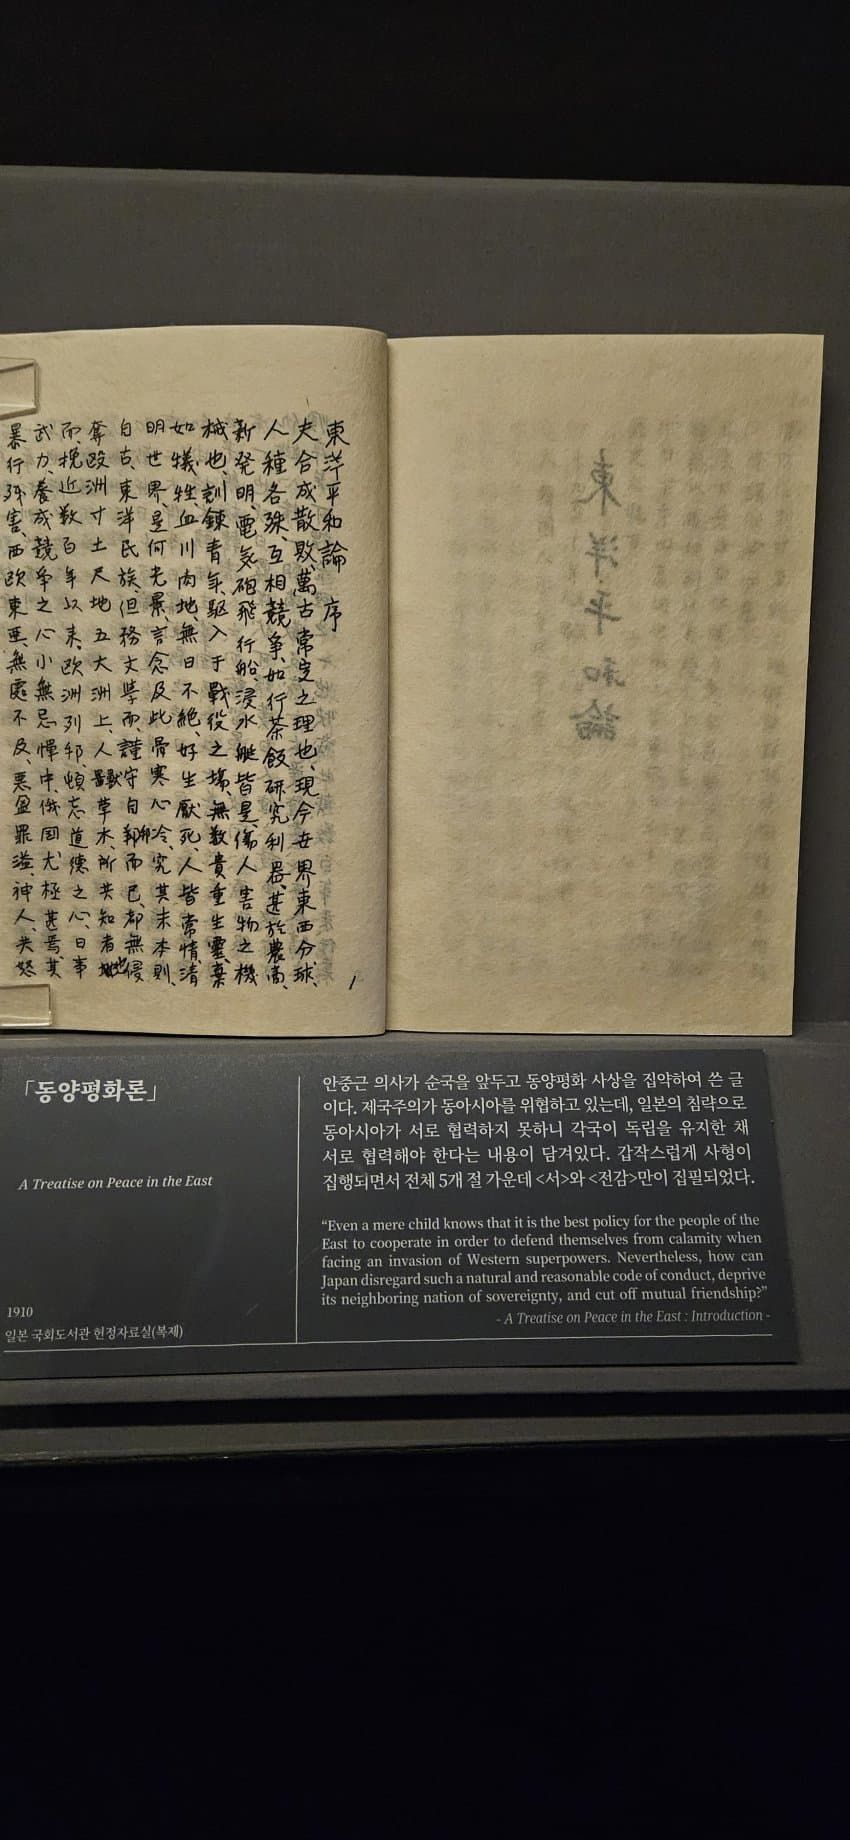 東洋平和論 序
夫合成散敗、萬古常定之理也、現今世界東西分球、
人種各殊、互相競爭、如行茶飯研究利器、甚於農商、
新發明、電氣砲飛行船、浸水艇皆是、傷人害物之機
械也、訓鍊青年、駆入于戰役之場、無數貴重生靈、棄
如犧牲血川肉地、無日不絶、好生厭死、人皆常情、清
明世界、是何光景、言念及此骨寒心冷、究其末本則、
自古、東洋民族、但務文學而、謹守自邦而已、都無侵
奪欧洲寸土尺地五大洲上、人獸草木所共知者也
而、挽近数百年以来、欧洲列邦、頓忘道德之心、日事
武力、養成競争之心小無忌憚中、俄国尤極甚焉、其
暴行残害、西欧東亜、無處不及、悪盈罪溢、神人、共怒
1
東洋平和論
「동양평화론」
A Treatise on Peace in the East
1910
일본 국회도서관 헌정자료실(복제)
안중근 의사가 순국을 앞두고 동양평화 사상을 집약하여 쓴 글
이다. 제국주의가 동아시아를 위협하고 있는데, 일본의 침략으로
동아시아가 서로 협력하지 못하니 각국이 독립을 유지한 채
서로 협력해야 한다는 내용이 담겨있다. 갑작스럽게 사형이
집행되면서 전체 5개 절 가운데 <서>와 <전감>만이 집필되었다.
“Even a mere child knows that it is the best policy for the people of the
East to cooperate in order to defend themselves from calamity when
facing an invasion of Western superpowers. Nevertheless, how can
Japan disregard such a natural and reasonable code of conduct, deprive
its neighboring nation of sovereignty, and cut off mutual friendship?”
- A Treatise on Peace in the East : Introduction -